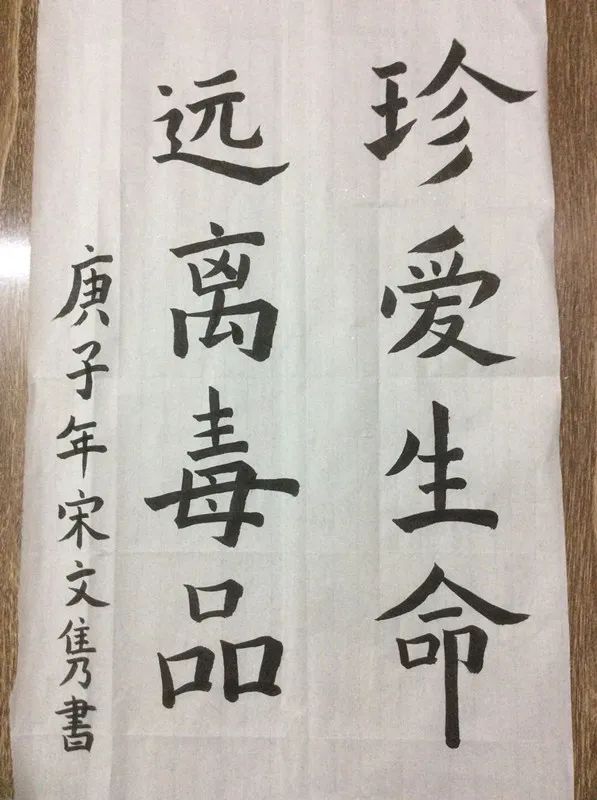 珍爱生命
远离毒品
庚子年宋文隽書